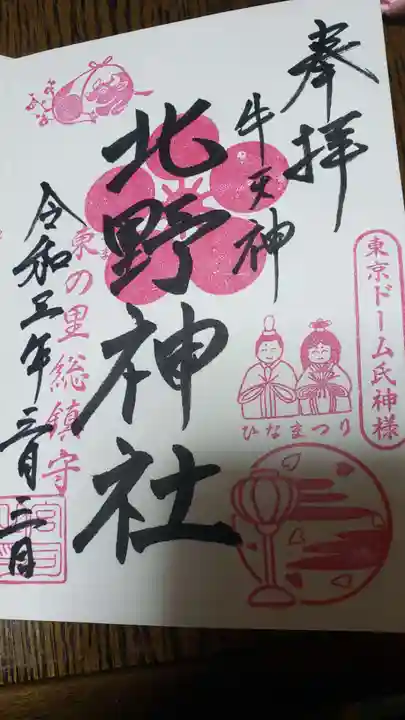 奉拝
牛天神
北野神社
令和五年三月三日
東京ドーム氏神様
ひなまつり
東の里総鎮守